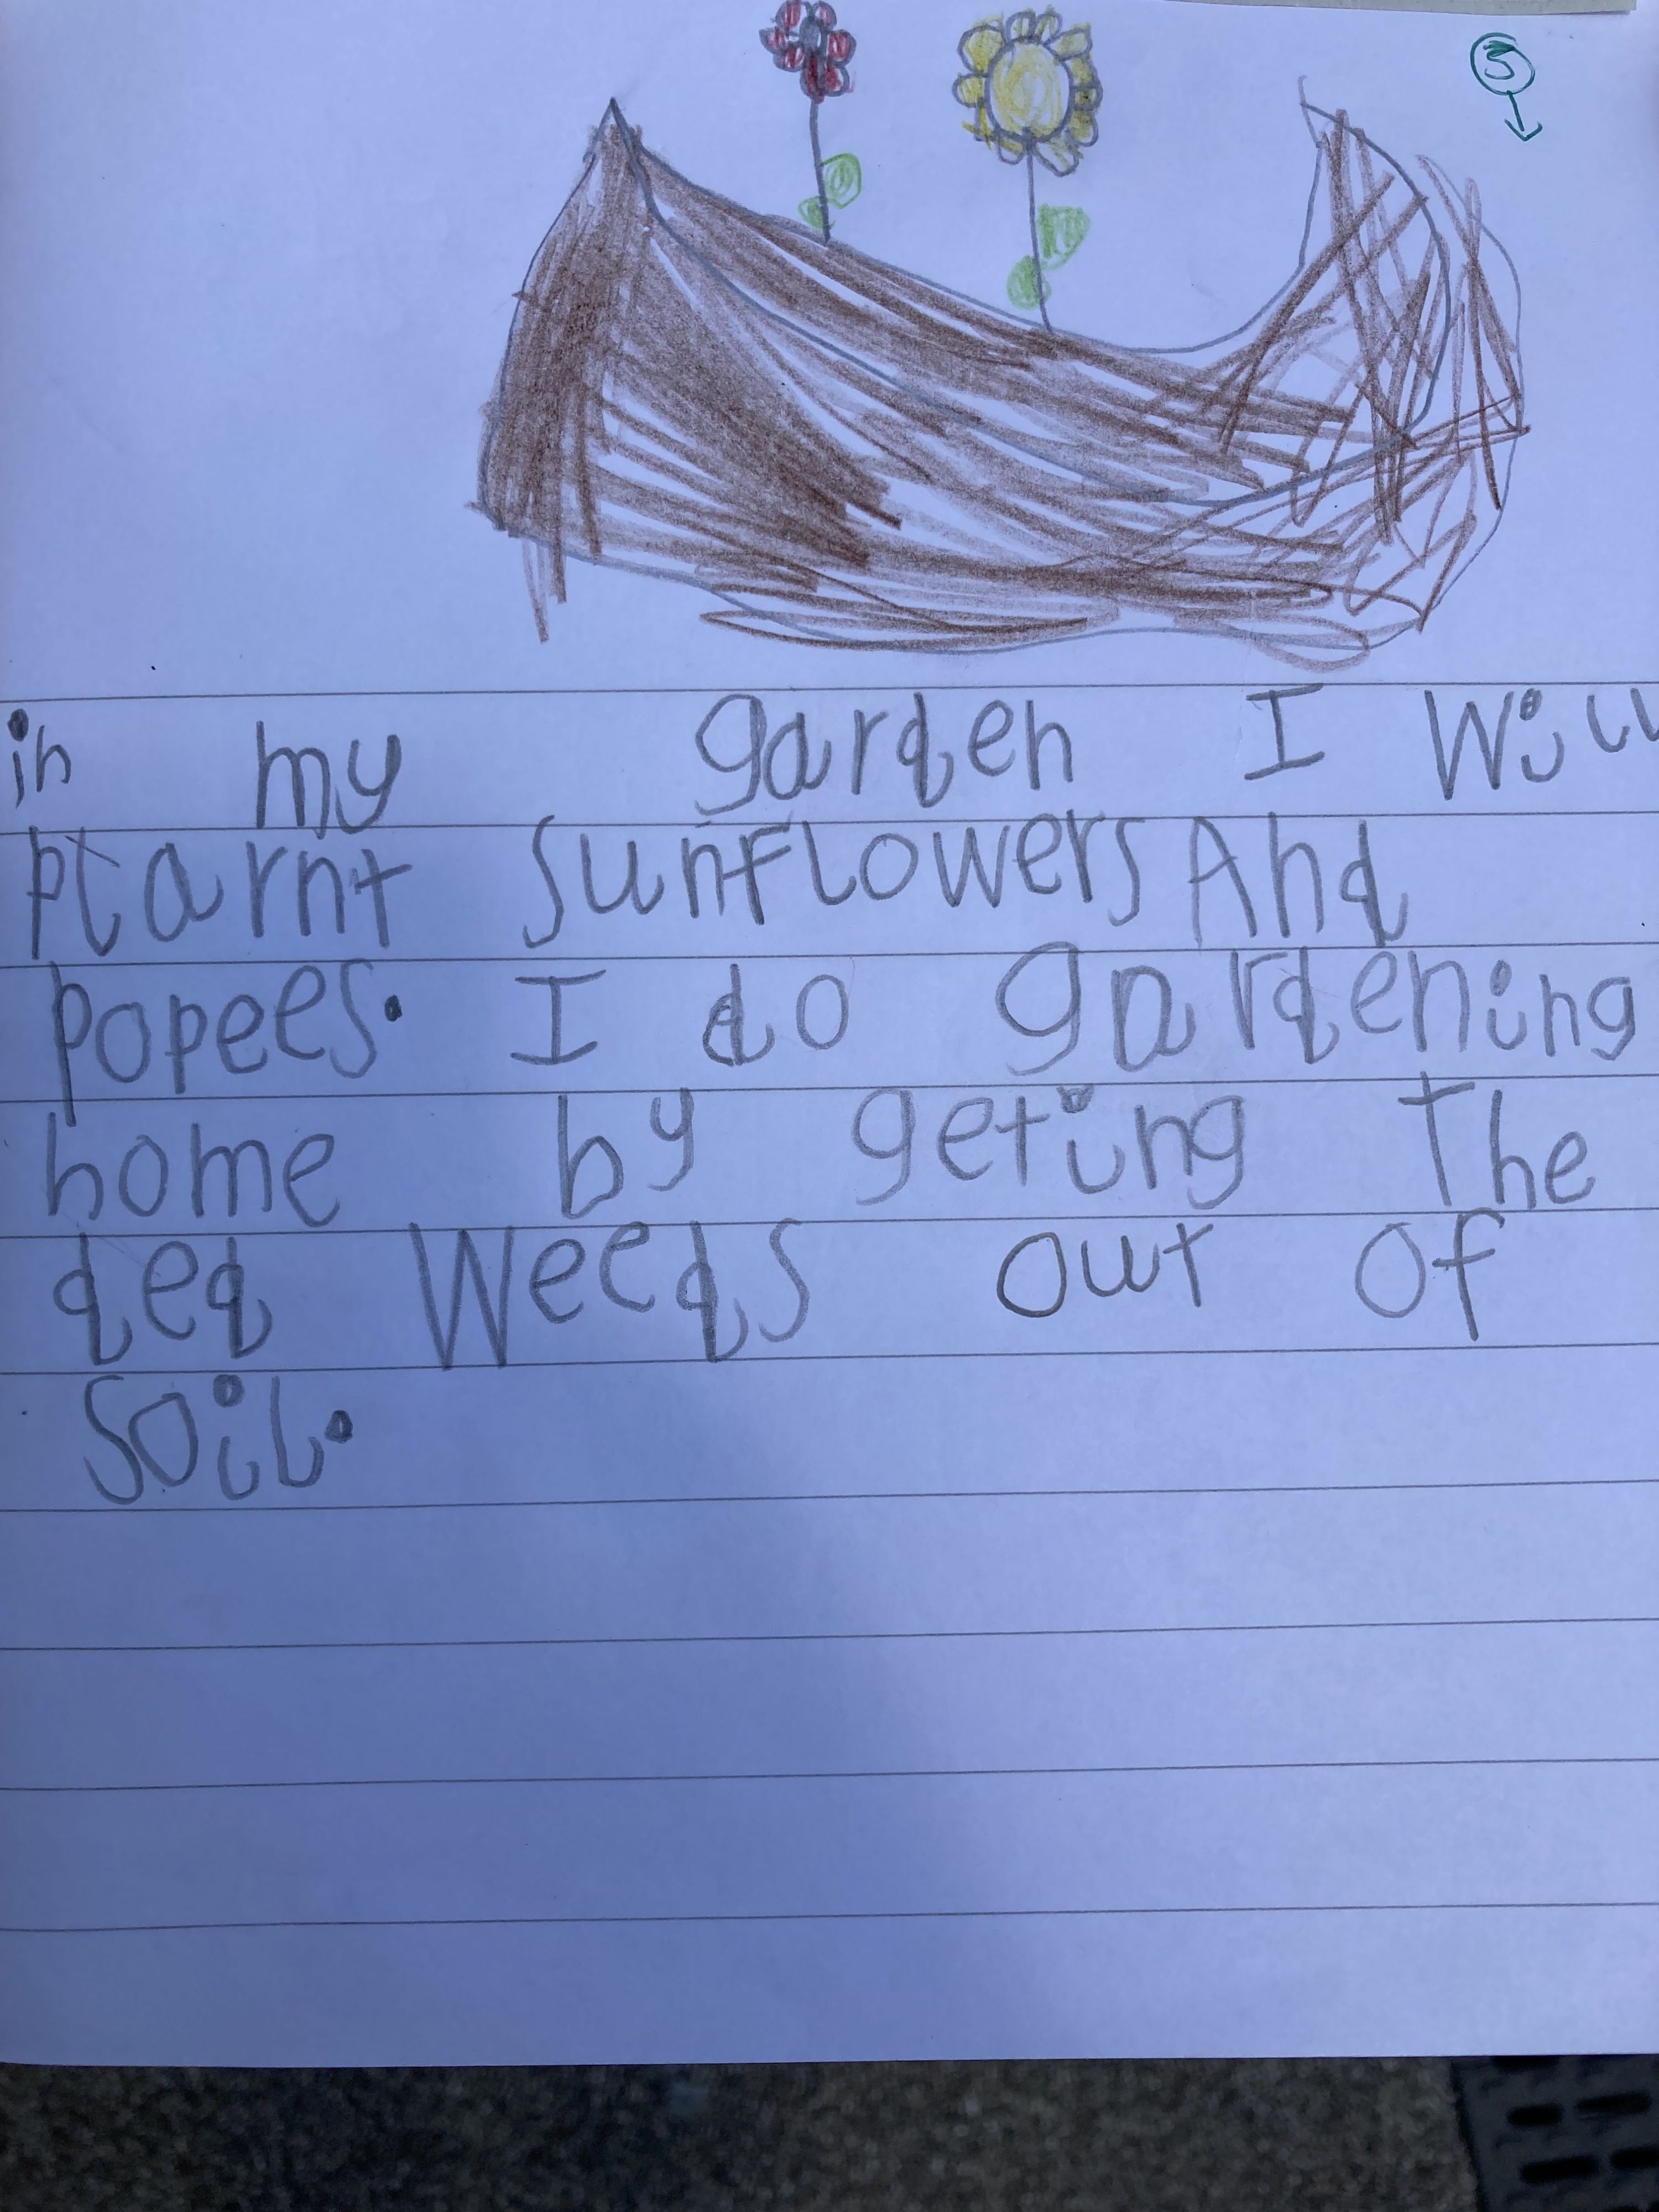 S
in my garden I will
Plarnt sunflowers And
popees. I do gardening
home by geting The
ded weeds out of
soil.